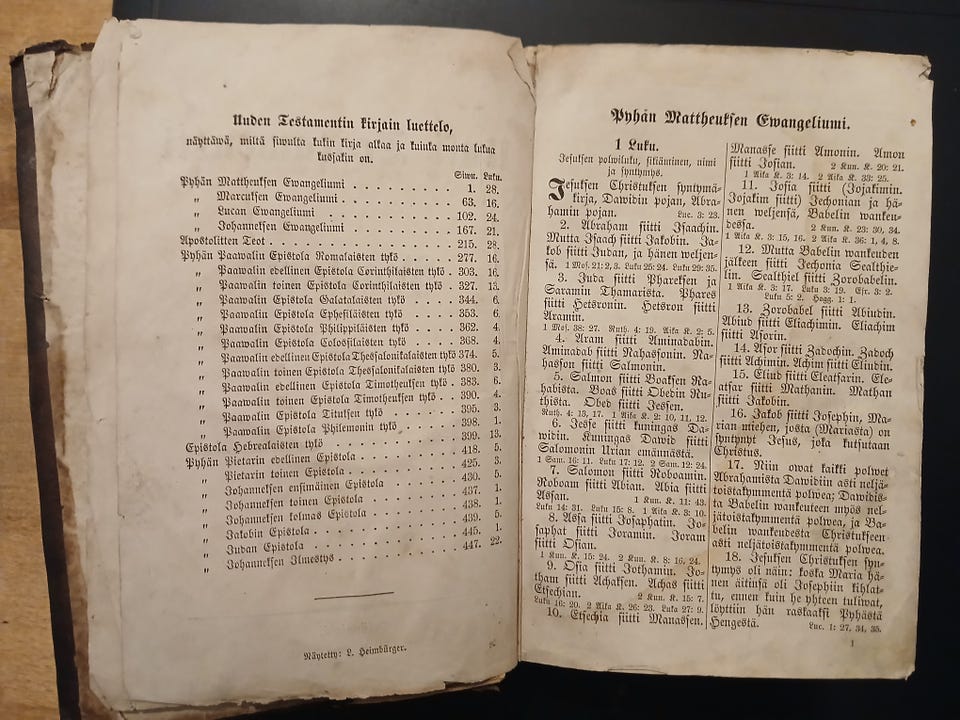 Uuden Testamentin kirjain luettelo,
näyttäwä, miltä siwulta kukin kirja alkaa ja kuinka monta lukua
kussakin on.
Siwu. Luku.
Pyhän Mattheuksen Ewangeliumi . . . . . . . . . 1. 28.
„ Marcuksen Ewangeliumi . . . . . . . . . 63. 16.
„ Lucan Ewangeliumi . . . . . . . . . 102. 24.
„ Johanneksen Ewangeliumi . . . . . . . . 167. 21.
Apostolitten Teot . . . . . . . . . . . . . 215. 28.
Pyhän Paawalin Epistola Romalaisten tykö . . . . . 277. 16.
„ Paawalin edellinen Epistola Corinthilaisten tykö . . 303. 16.
„ Paawalin toinen Epistola Corinthilaisten tykö . . . 327. 13.
„ Paawalin Epistola Galatalaisten tykö . . . . . 344. 6.
„ Paawalin Epistola Ephesiläisten tykö . . . . . 353. 6.
„ Paawalin Epistola Philippiläisten tykö . . . . 362. 4.
„ Paawalin Epistola Colossilaisten tykö . . . . . 368. 4.
„ Paawalin edellinen Epistola Thessalonikalaisten tykö 374. 5.
„ Paawalin toinen Epistola Thessalonikalaisten tykö . 380. 3.
„ Paawalin edellinen Epistola Timotheuksen tykö . . 383. 6.
„ Paawalin toinen Epistola Timotheuksen tykö . . . 390. 4.
„ Paawalin Epistola Tituksen tykö . . . . . . 395. 3.
„ Paawalin Epistola Philemonin tykö . . . . . 398. 1.
Epistola Hebrealaisten tykö . . . . . . . . . 399. 13.
Pyhän Pietarin edellinen Epistola . . . . . . . . 418. 5.
„ Pietarin toinen Epistola . . . . . . . . 425. 3.
„ Johanneksen ensimäinen Epistola . . . . . . 430. 5.
„ Johanneksen toinen Epistola . . . . . . . 437. 1.
„ Johanneksen kolmas Epistola . . . . . . . 438. 1.
„ Jakobin Epistola . . . . . . . . . . 439. 5.
„ Judan Epistola . . . . . . . . . . . 445. 1.
„ Johanneksen Ilmestys . . . . . . . . . 447. 22.
Näytetty: L. Heimbürger.
Pyhän Mattheuksen Ewangeliumi.
1 Luku.
Jesuksen polwiluku, sikiäminen, nimi
ja syntymys.
Jesuksen Christuksen syntymä-
kirja, Dawidin pojan, Abra-
hamin pojan. Luc. 3: 23.
2. Abraham siitti Isaachin.
Mutta Isaach siitti Jakobin. Ja-
kob siitti Judan, ja hänen weljen-
sä. 1 Mos. 21: 2, 3. Luku 25: 24. Luku 29: 35.
3. Juda siitti Phareksen ja
Saramin Thamarista. Phares
siitti Hetsronin. Hetsron siitti
Aramin.
1 Mos. 38: 27. Ruth. 4: 19. Aika K. 2: 5.
4. Aram siitti Aminadabin.
Aminadab siitti Nahassonin. Na-
hasson siitti Salmonin.
5. Salmon siitti Boaksen Ra-
habista. Boas siitti Obedin Ru-
thista. Obed siitti Jessen.
Ruth. 4: 13, 17. 1 Aika K. 2: 10, 11, 12.
6. Jesse siitti kuningas Da-
widin. Kuningas Dawid siitti
Salomonin Urian emännästä.
1 Sam. 16: 11. Luku 17: 12. 2 Sam. 12: 24.
7. Salomon siitti Roboamin.
Roboam siitti Abian. Abia siitti
Assan. 1 Kun. K. 11: 43.
Luku 14: 31. Luku 15: 8. 1 Aika K. 3: 10.
8. Assa siitti Josaphatin. Jo-
saphat siitti Joramin. Joram
siitti Osian.
1 Kun. K. 15: 24. 2 Kun. K. 8: 16, 24.
9. Osia siitti Jothamin. Jo-
tham siitti Achaksen. Achas siitti
Etsechian. 2 Kun. K. 15: 7.
Luku 16: 20. 2 Aika K. 26: 23. Luku 27: 9.
10. Etsechia siitti Manassen.
Manasse siitti Amonin. Amon
siitti Josian. 2 Kun. K. 20: 21.
1 Aika K. 3: 14. 2 Aika K. 33: 25.
11. Josia siitti (Jojakimin.
Jojakim siitti) Jechonian ja hä-
nen weljensä, Babelin wanken-
dessa. 2 Kun. K. 23: 30, 34.
1 Aika K. 3: 15, 16. 2 Aika K. 36: 1, 4, 8.
12. Mutta Babelin wankeuden
jälkeen siitti Jechonia Sealthie-
lin. Sealthiel siitti Zorobabelin.
1 Aika K. 3: 17. Luku 3: 19. Esr. 3: 2.
Luku 5: 2. Hagg. 1: 1.
13. Zorobabel siitti Abiudin.
Abiud siitti Eliachimin. Eliachim
siitti Asorin.
14. Asor siitti Zadochin. Zadoch
siitti Achimin. Achim siitti Eliudin.
15. Eliud siitti Eleatsarin. Ele-
atsar siitti Mathanin. Mathan
siitti Jakobin.
16. Jakob siitti Josephin, Ma-
rian miehen, josta (Mariasta) on
syntynyt Jesus, joka kutsutaan
Christus.
17. Niin owat kaikki polwet
Abrahamista Dawidiin asti neljä-
toistakymmentä polwea; Dawidis-
ta Babelin wankeuteen myös nel-
jätoistakymmentä polwea, ja Ba-
belin wankeudesta Christukseen
asti neljätoistakymmentä polwea.
18. Jesuksen Christuksen syn-
tymys oli näin: koska Maria hä-
nen äitinsä oli Josephiin kihlat-
tu, ennen kuin he yhteen tuliwat,
löyttiin hän raskaaksi Pyhästä
Hengestä. Luc. 1: 27, 34, 35.
1